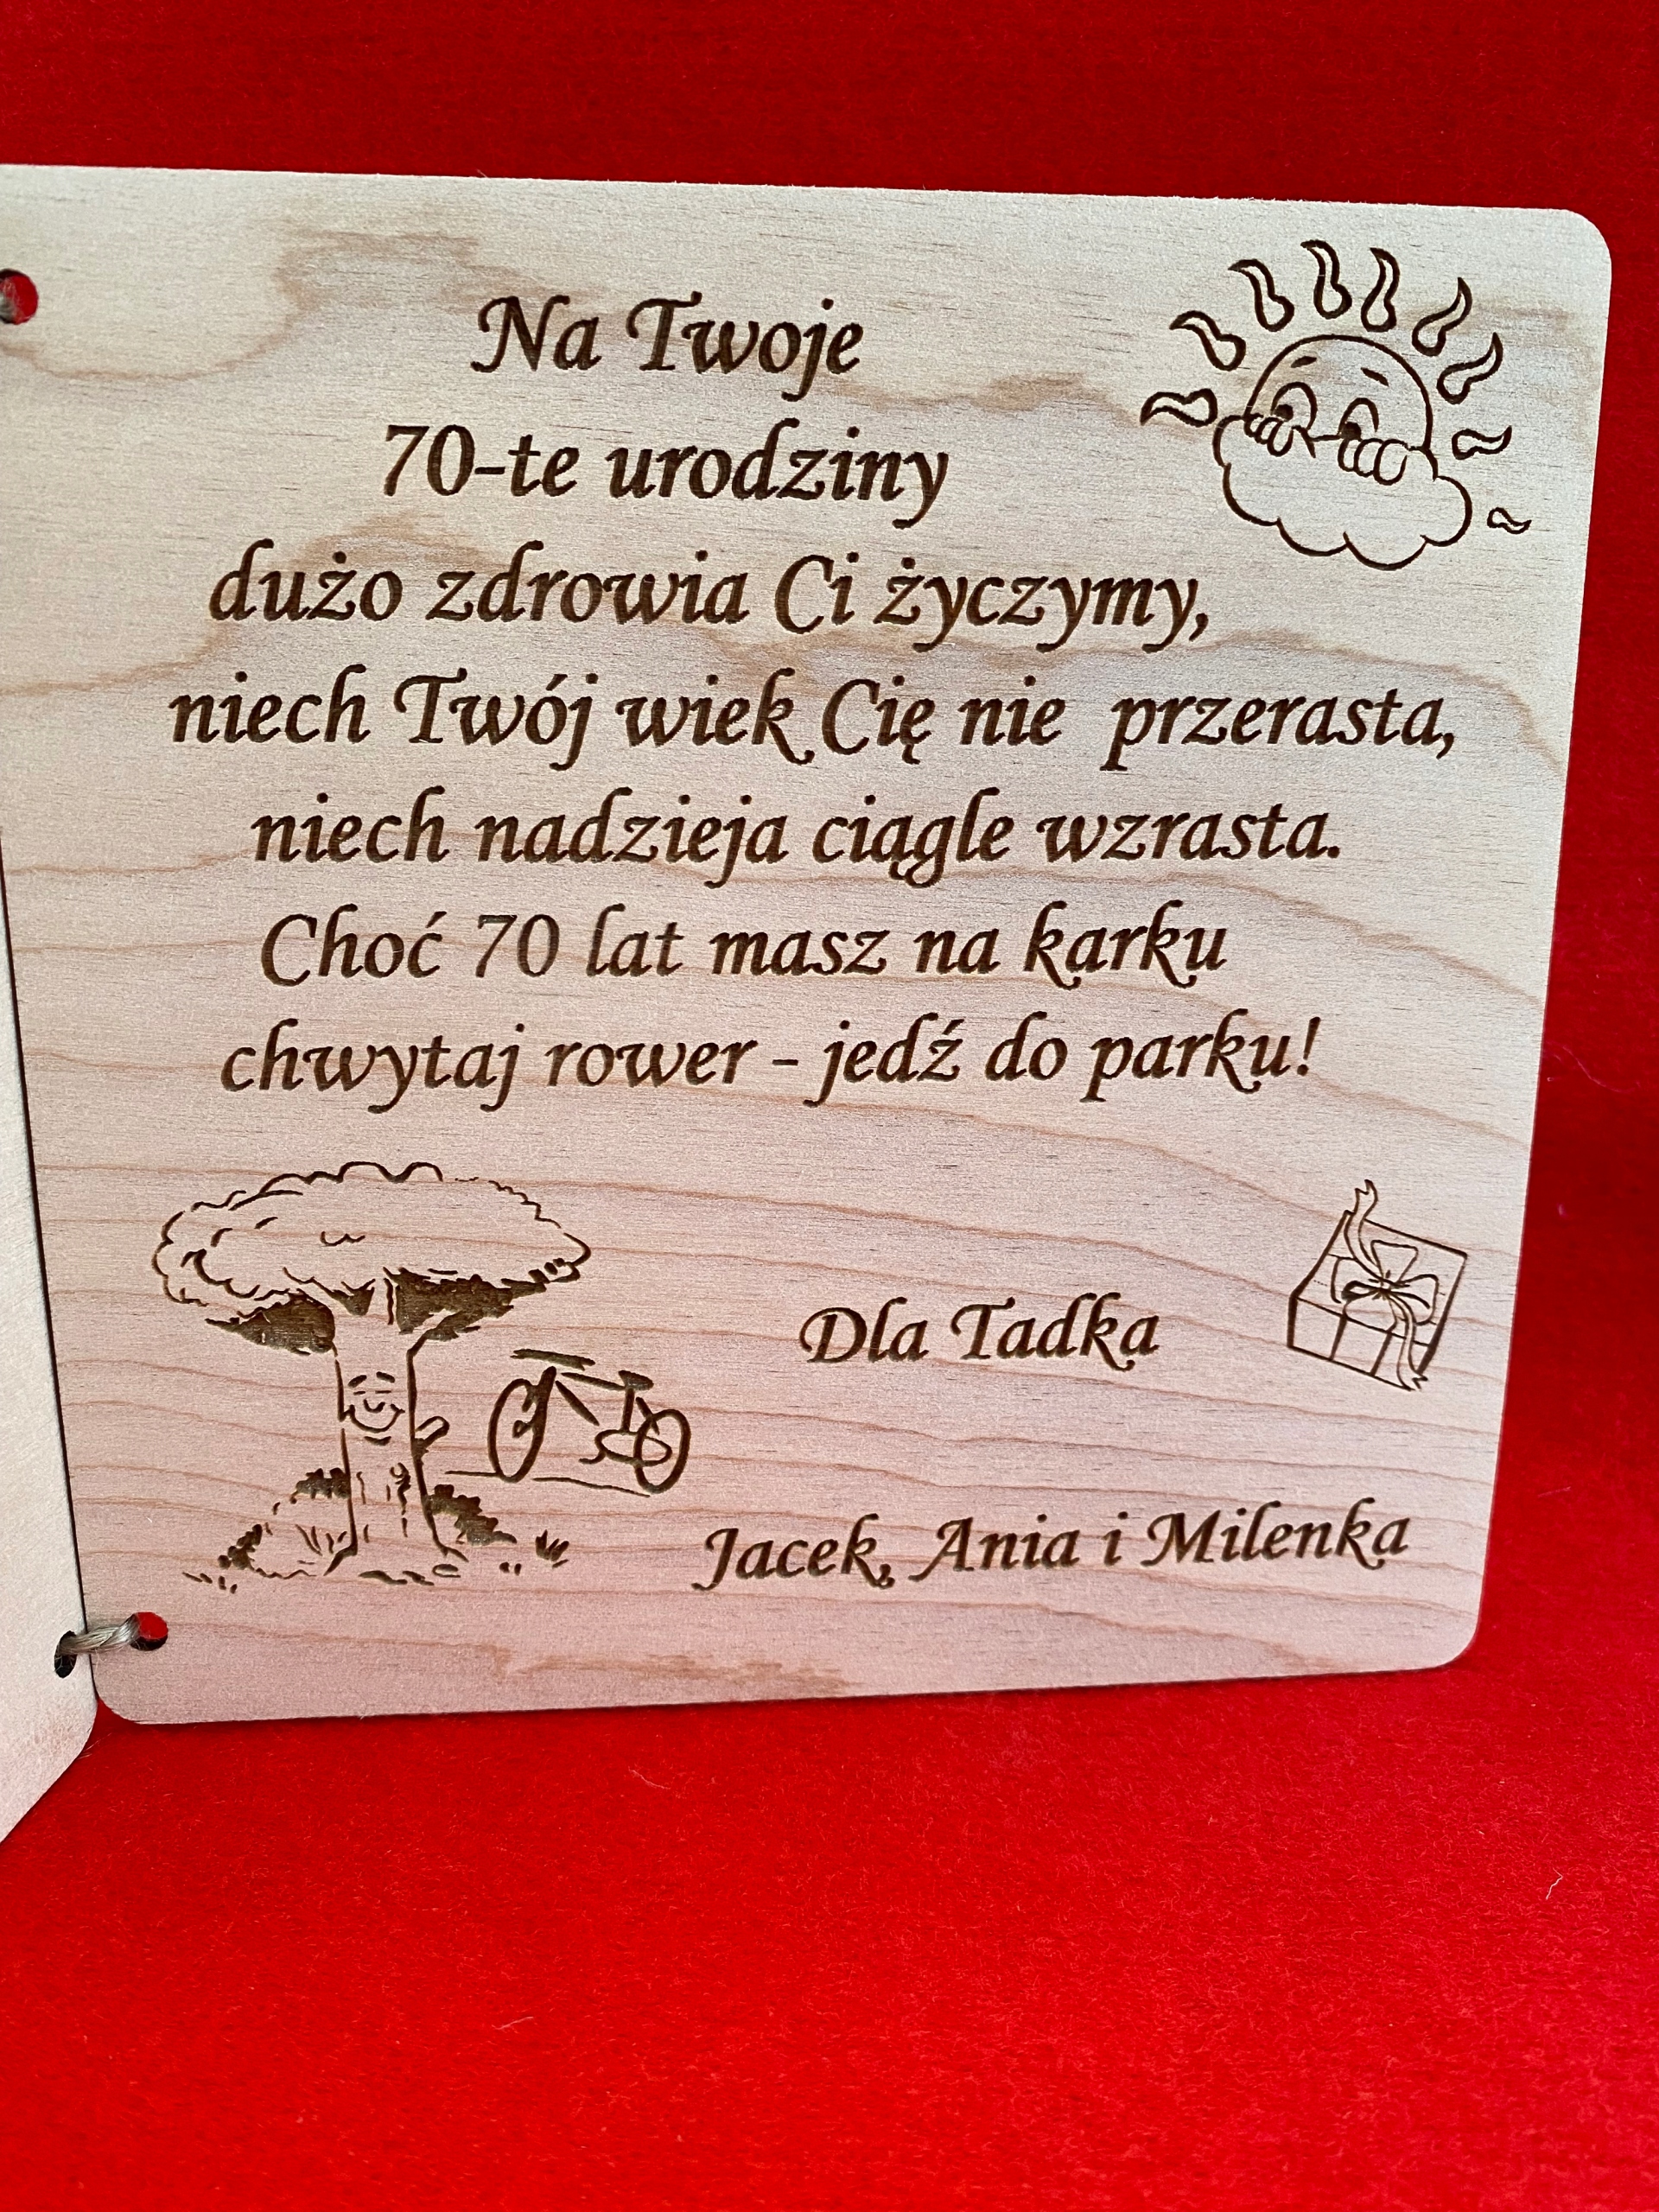 Na Twoje
70-te urodziny
dużo zdrowia Ci życzymy,
niech Twój wiek Cię nie przerasta,
niech nadzieja ciągle wzrasta.
Choć 70 lat masz na karku
chwytaj rower - jedź do parku!
Dla Tadka
Jacek, Ania i Milenka